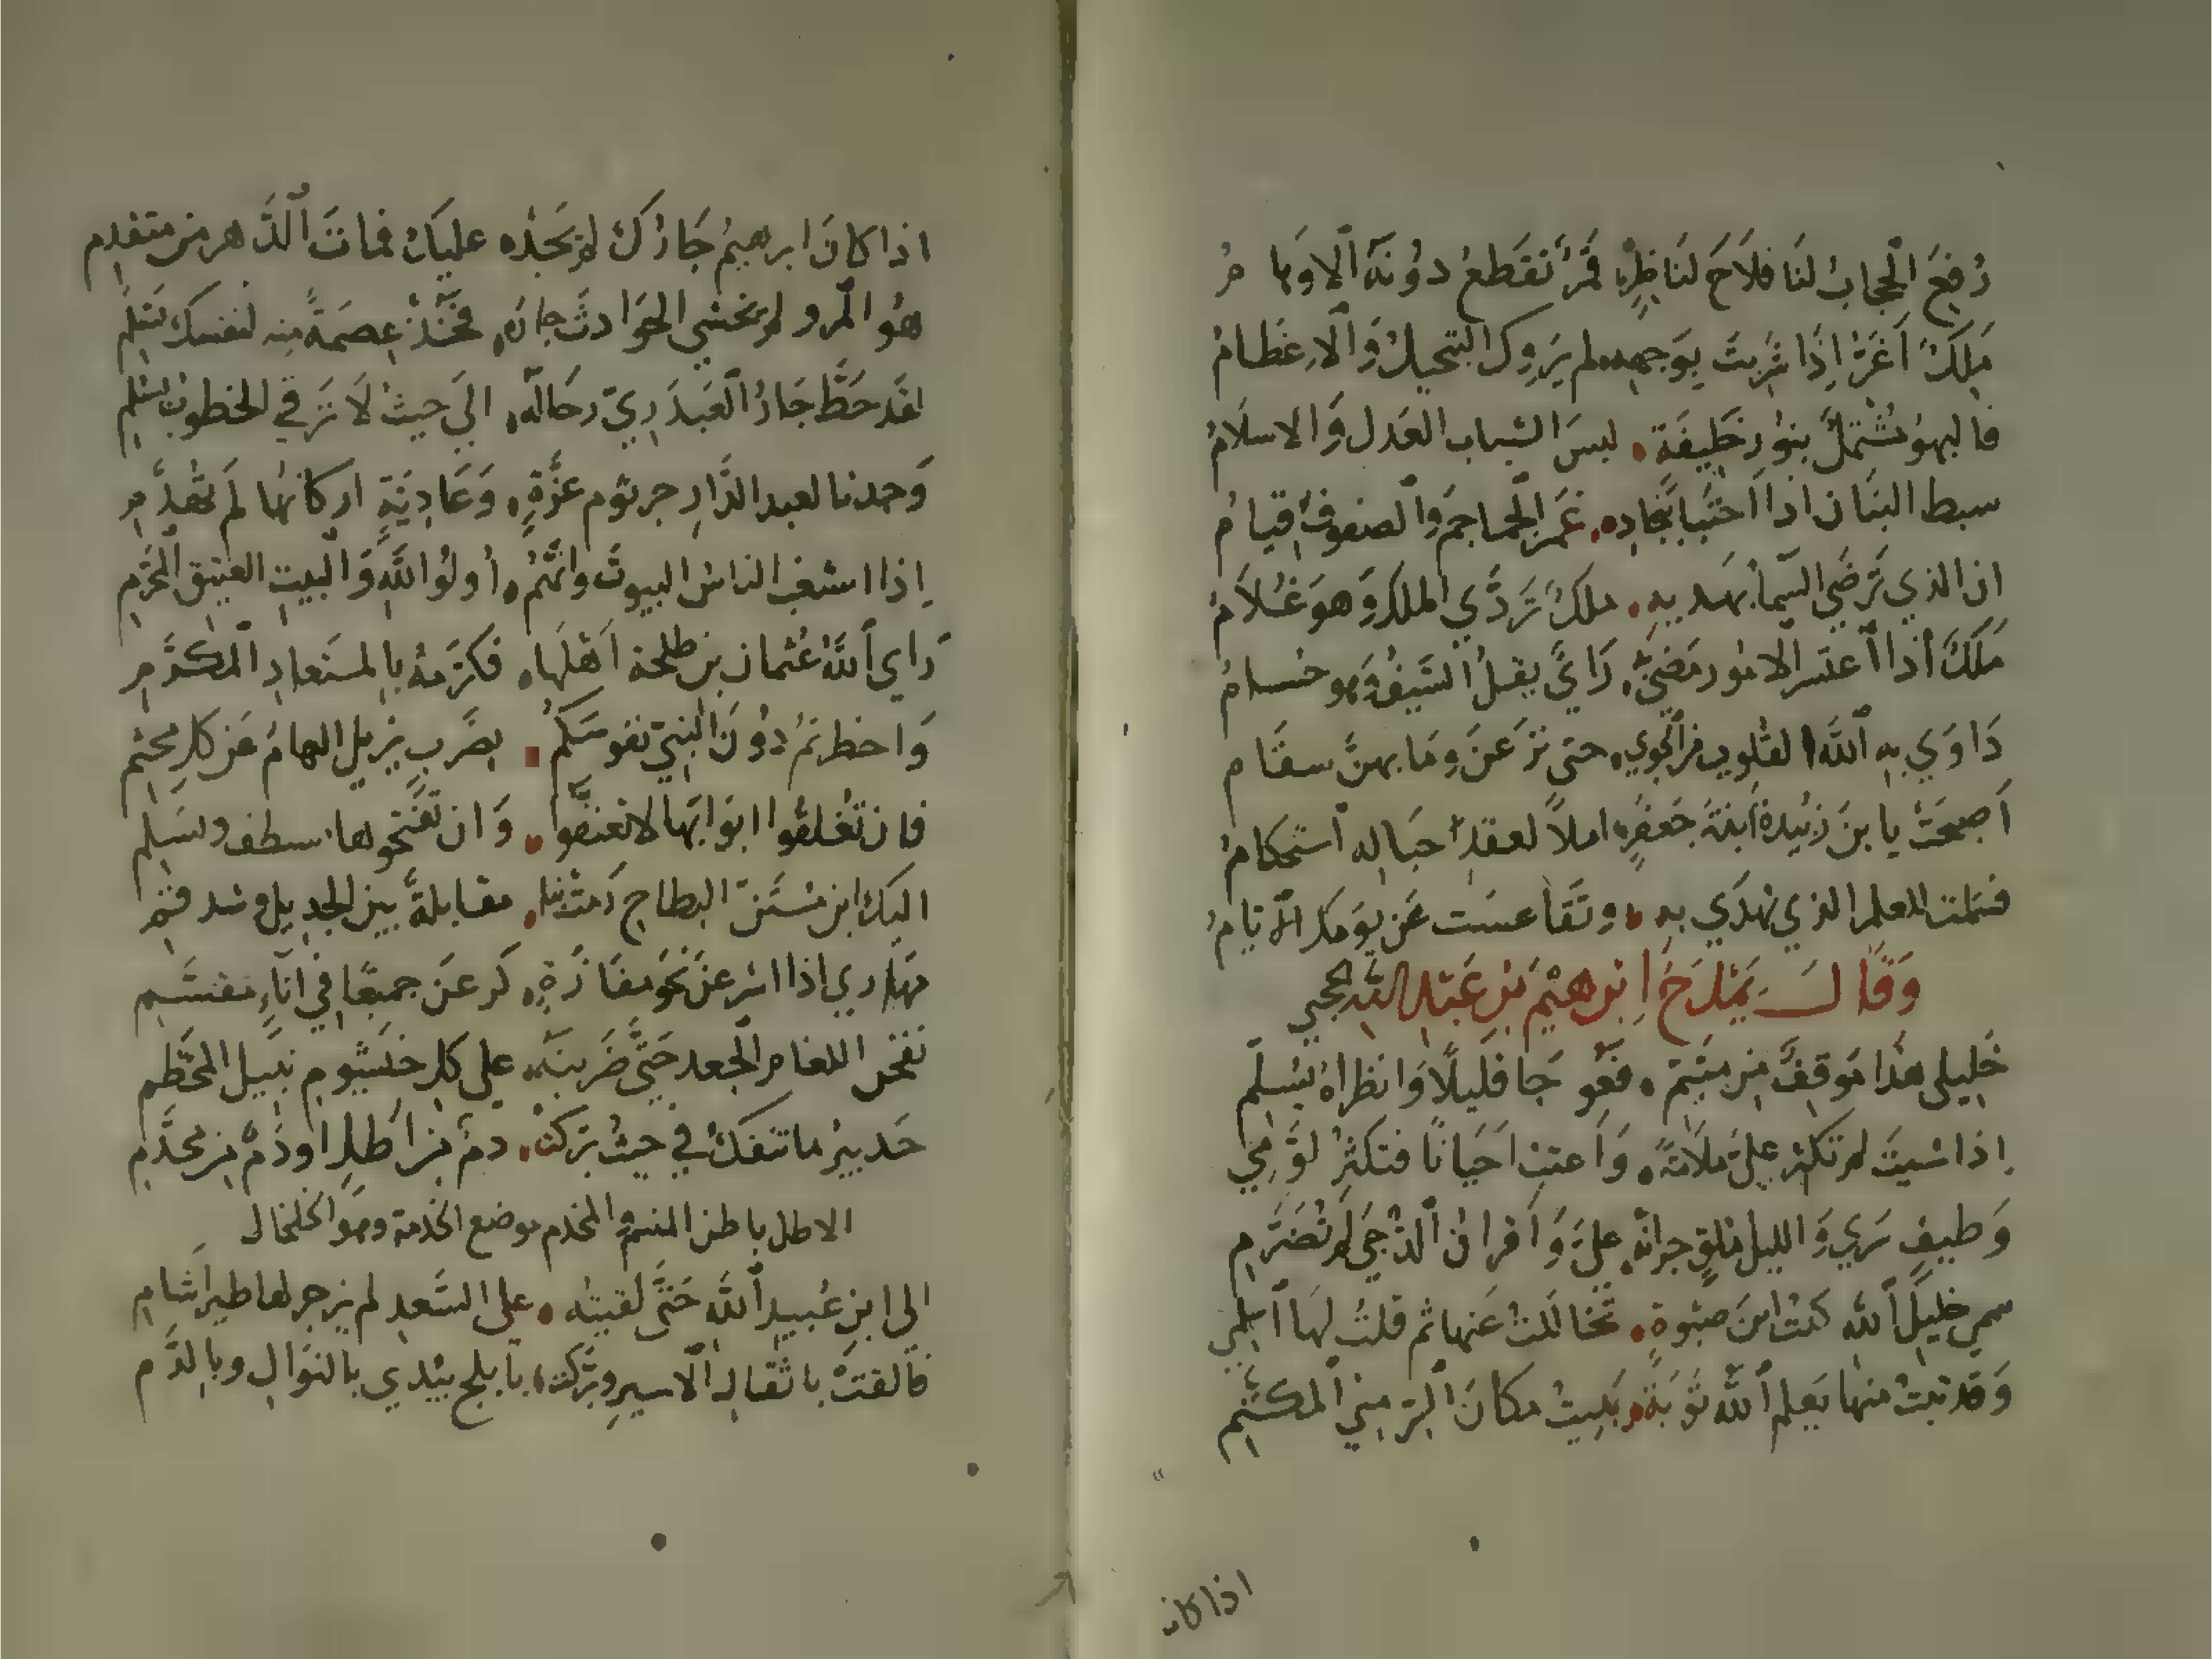 رُفِعَ الحِجابُ لنَا فلاَحَ لنَاظِرٍ قمَرٌ تقَطعُ دوُنَهُ الاوهَامُ
مَلِكٌ اَغَرُّ اِذَا شَرِبتَ بِوَجهِه لم يَروِك التبجيلُ وَالاِعظَامُ
فالبهوُ مُشتملٌ بنوُر خَليفَةٍ لبسَ الشباب العَدل وَالاسلامُ
سبط البنَان اذا اَحتَبا بنجادِه غمَر الجماجمَ وَالصفوفُ قيامُ
ان الذي تَرضَي السّما بهَديه ملكٌ تَردَّي الملك وَهوَ غُلاَمُ
مَلكٌ اذا اَعتسر الامُور مَضيَ بِهِ رَايٌ يفلُ السَّيفَ وَهو حُسامُ
دَاوَي بِهِ اللَّهُ القلُوب من الجوي حتى نزَعنَ وَمَا بهنَّ سقَام
اَصبحَتْ يا بنَ زبُيدة اَبنَةَ جَعفَرٍ املاً لعقدِ حبَاله اَستحكامُ
فسَلمت للعلم الذي يُهدَي به وتقَاعسَت عَن يوَمكَ الاَيامُ
وَقَالَ يَمْدَحُ اِبرهيْمَ بنِ عَبدِ اللَّهِ الحجبي
خَليلي هذَا مَوقِفٌ مِن مُتَيّم فَعُوجَا قليلًا وَانظرَاهُ يُسَلّم
اِذا شيتَ لم تكثر عليَّ ملاَمَةً وَاَعتبْ اَحيَانًا فتكثِرُ لوَّمِي
وَطيفٍ سَرَي وَالليل مُلقٍ جرانهُ عليَّ وَاَقرانُ الدُّجَي لم تُصَرَّم
سمي خليلِ اللَّه كنتُ ابنَ صَبوةٍ تخاَللتُ عَنها ثم قلتُ لهَا اَسلمِي
وَقَد تبتُ منها يَعلم اللّه توَبَةً وَبليتُ مكانَ السِّرّ مِنيّ المكتَّم
اذا كان
اذا كانَ ابرهيمُ جَارُكَ لم تجَدْه عليَك فماتَ الدَّهر من متقدِم
هوُ المرو لم يخشي الحوَادثَ جارَه فخُذْ عِصمَةً مِنه لنفسك تَسلَم
لقَد حَطَّ جَارُ العَبدَرِيّ رحَالَهُ الي حيثُ لاَ تَرقي الخطوبُ بُسلّم
وَجدنا لعبد الدَّارِ جرثوم عزَّةٍ وَعَادِيَةٍ اركانهَا لم تُهدَّمِ
اِذا استغبَ الناسُ البيوتَ وانتُمُ اُولوُ اللَّه وَالبيتِ العتيقِ المحرَّمِ
رَاي اللَّهُ عُثمان بن طلحة اَهْلهَا فكرَّمهُ بالمستَعادِ المكرَّم
وَاخطرتمُ دوُنَ النبيّ نفوسَكُمْ بضَربٍ يزيل الهامَ عَن كل مجثم
فان تغُلقوُا ابوَابَهَا لا تُعنّفوُا وَان تفَتحوُها وتسَلم
اليَك ابن مُستَنّ البطاح رَمَتْ بنا مقَابلةً بين الجديل وشدقم
مهَاري اذا اشرعنَ نحوَ مفَازَةٍ كرعنَ جميعًا في اَناءٍ مقسّمِ
نفخن اللغام الجعد حَتَّي ضَربنَهُ علي كلِ خَيشومٍ نبيل المخَطّم
حَدَبيرُ ما تنفكُّ في حيثُ برَكت دمٌ من اَظلٍ او دمٌ من مخدَّم
الاظل باطن المنسم والمخدم موضع الخدمة وهو الخلخال
الي ابن عُبيد اللَّه حَتَّى لقيتهُ علي السَّعدِ لم يزجر لها طيرَ اَشامِ
فالقتْ باثقالِ الاَسيرِ وبرّكت باَبلجَ يَندي بالنوَالِ وبالدَّم